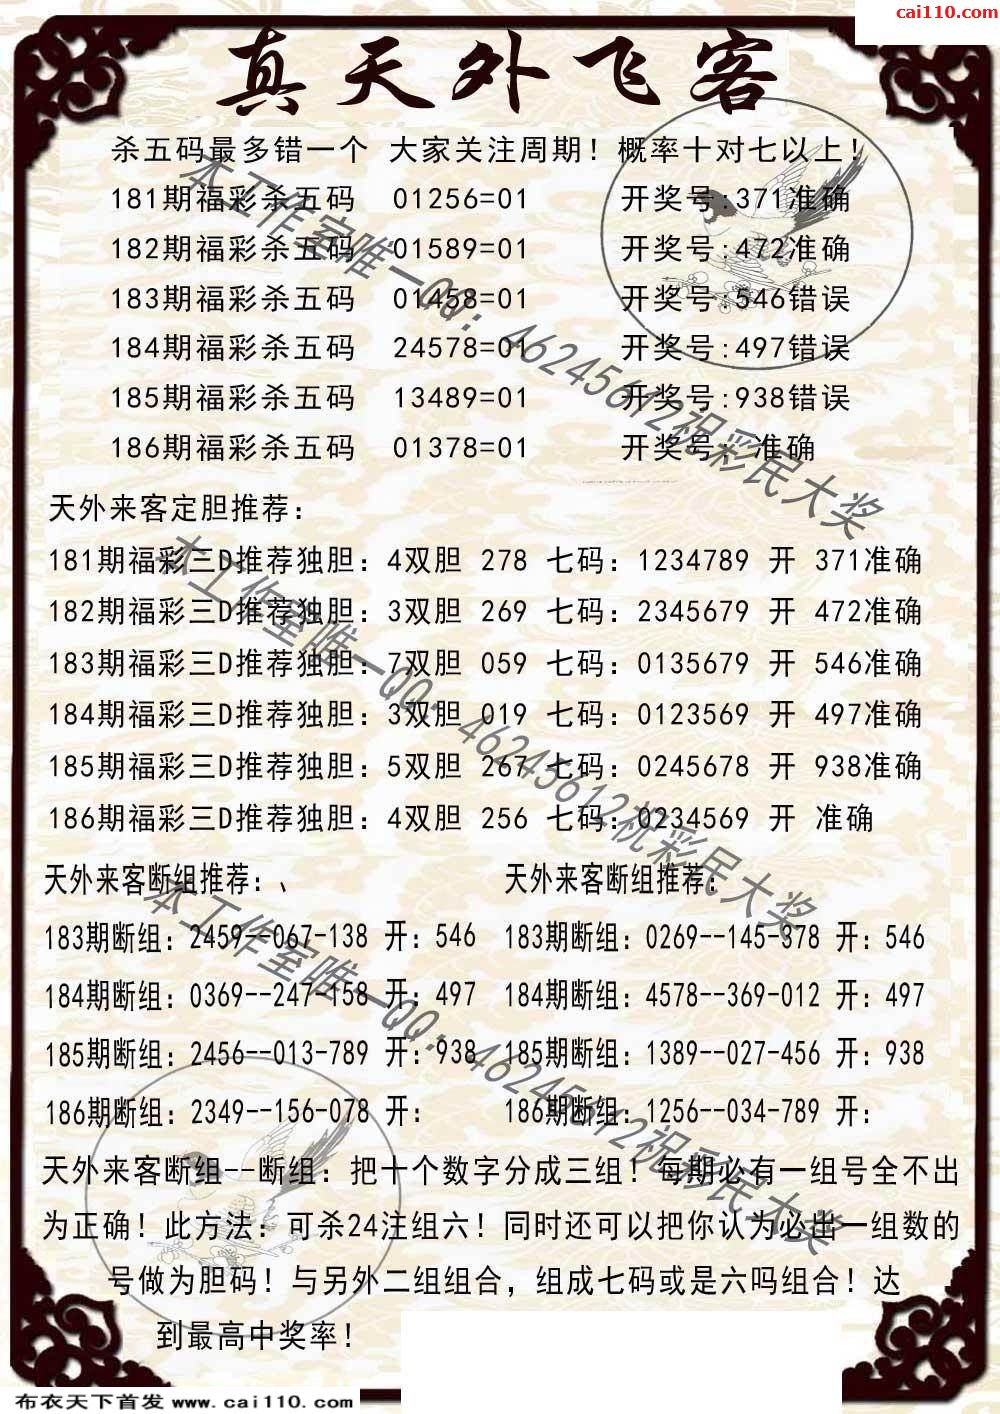 cai110.com
真天外飞客
杀五码最多错一个 大家关注周期！概率十对七以上！
181期福彩杀五码 01256=01 开奖号:371准确
182期福彩杀五码 01589=01 开奖号:472准确
183期福彩杀五码 01458=01 开奖号:546错误
184期福彩杀五码 24578=01 开奖号:497错误
185期福彩杀五码 13489=01 开奖号:938错误
186期福彩杀五码 01378=01 开奖号: 准确
本工作室唯一QQ：46245612祝彩民大奖
天外来客定胆推荐：
181期福彩三D推荐独胆：4双胆 278 七码：1234789 开 371准确
182期福彩三D推荐独胆：3双胆 269 七码：2345679 开 472准确
183期福彩三D推荐独胆：7双胆 059 七码：0135679 开 546准确
184期福彩三D推荐独胆：3双胆 019 七码：0123569 开 497准确
185期福彩三D推荐独胆：5双胆 267 七码：0245678 开 938准确
186期福彩三D推荐独胆：4双胆 256 七码：0234569 开 准确
本工作室唯一QQ：46245612祝彩民大奖
天外来客断组推荐：、 天外来客断组推荐：
183期断组：2459--067-138 开：546 183期断组：0269--145-378 开：546
184期断组：0369--247-158 开：497 184期断组：4578--369-012 开：497
185期断组：2456--013-789 开：938 185期断组：1389--027-456 开：938
186期断组：2349--156-078 开： 186期断组：1256--034-789 开：
本工作室唯一QQ：46245612祝彩民大奖
天外来客断组--断组：把十个数字分成三组！每期必有一组号全不出
为正确！此方法：可杀24注组六！同时还可以把你认为必出一组数的
号做为胆码！与另外二组组合，组成七码或是六吗组合！达
到最高中奖率！
布衣天下首发 www.cai110.com